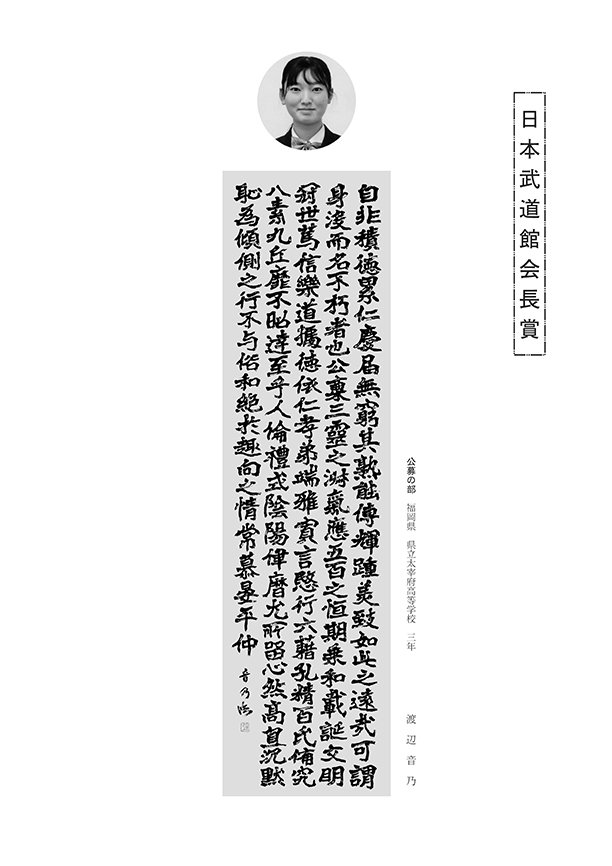 日本武道館会長賞
公募の部　福岡県　県立太宰府高等学校　三年　渡辺音乃
自非積德累仁慶屆無窮其孰能傳輝踵美致如此之遠哉可謂
身没而名不朽者也公稟三靈之淑氣應五百之恒期乗和載誕文明
冠世篤信樂道據德依仁孝弟端雅寡言愍行六藉孔精百氏備究
八素九丘靡不昭達至乎人倫禮式陰陽律曆尤所留心然高直沉黙
恥為傾側之行不与俗和絕於趣向之情常慕晏平仲　音乃臨